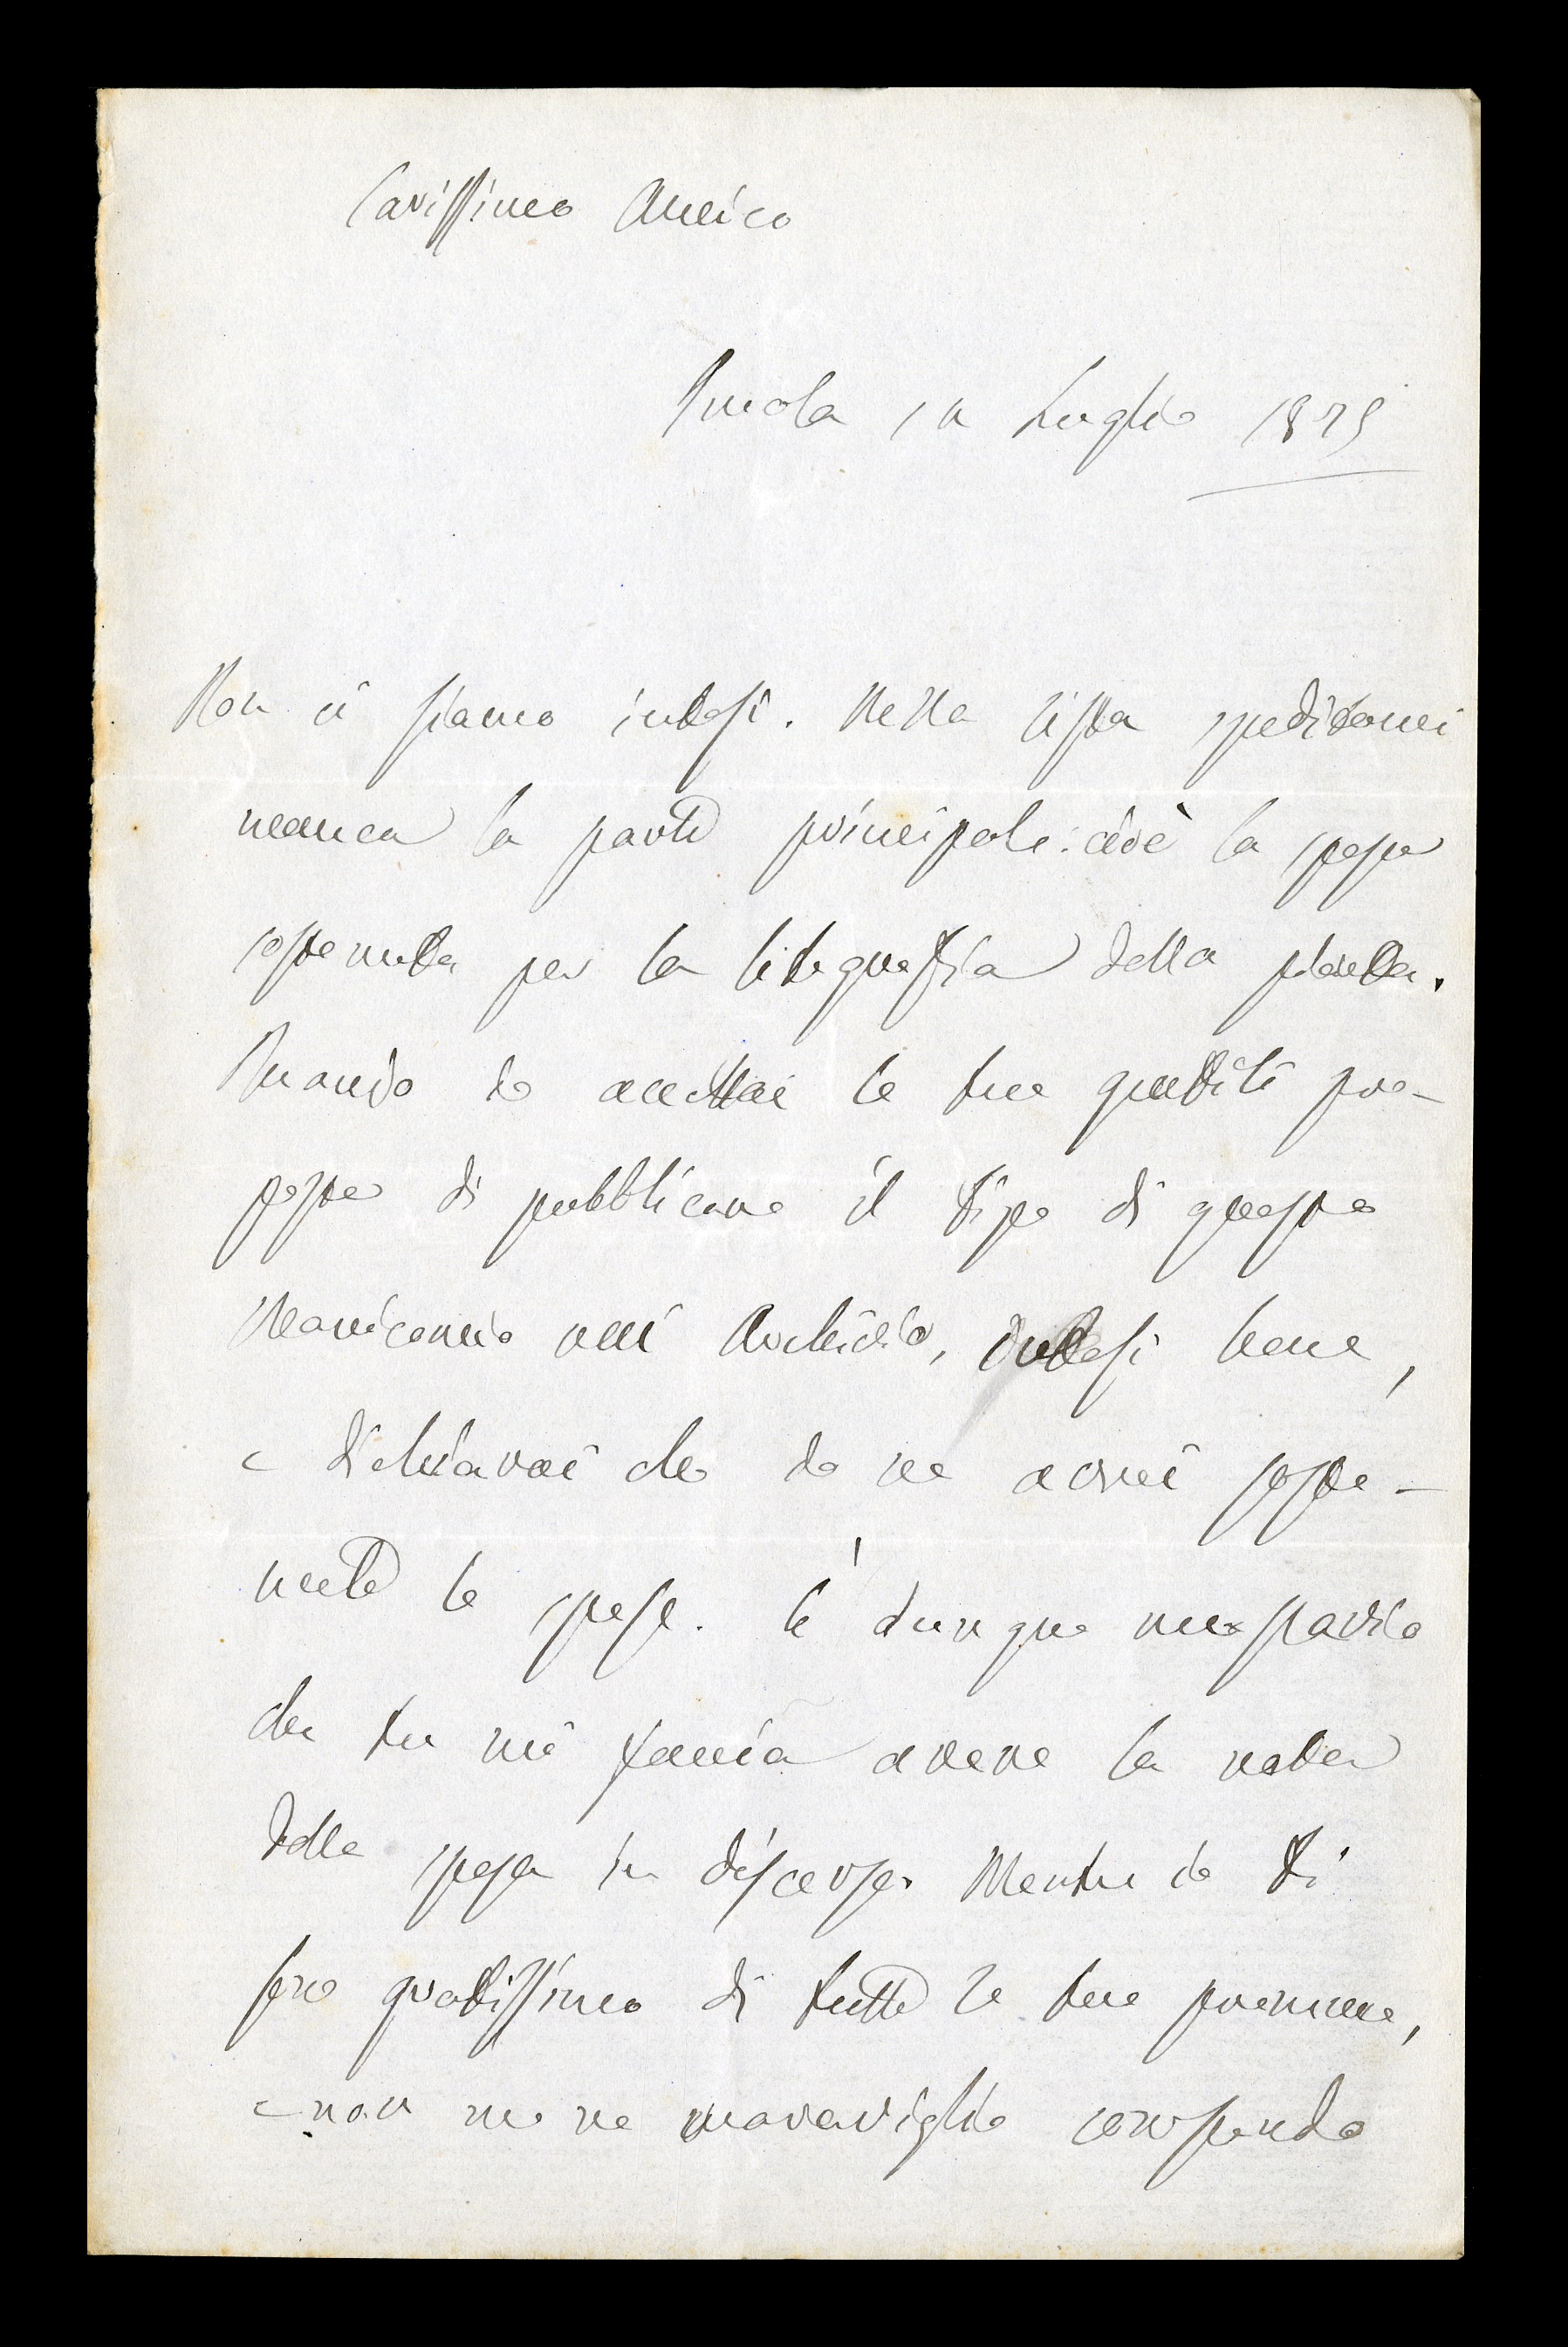 Carissimo Amico
Imola Luglio 1875
Non ci siamo intesi. Nella lista speditami
manca la parte principale: cioè la spesa
sostenuta per la litografia della pianta.
Quando io accettai le tue gentili pro-
poste di pubblicare il tipo di questo
Manicomio nell' Archivio, intesi bene,
e dichiarai che io ne avrei soste-
nute le spese. È dunque necessario
che tu mi faccia avere la nota
della spesa in discorso. Mentre io ti
sono gratissimo di tutte le tue premure,
e non me ne maraviglio